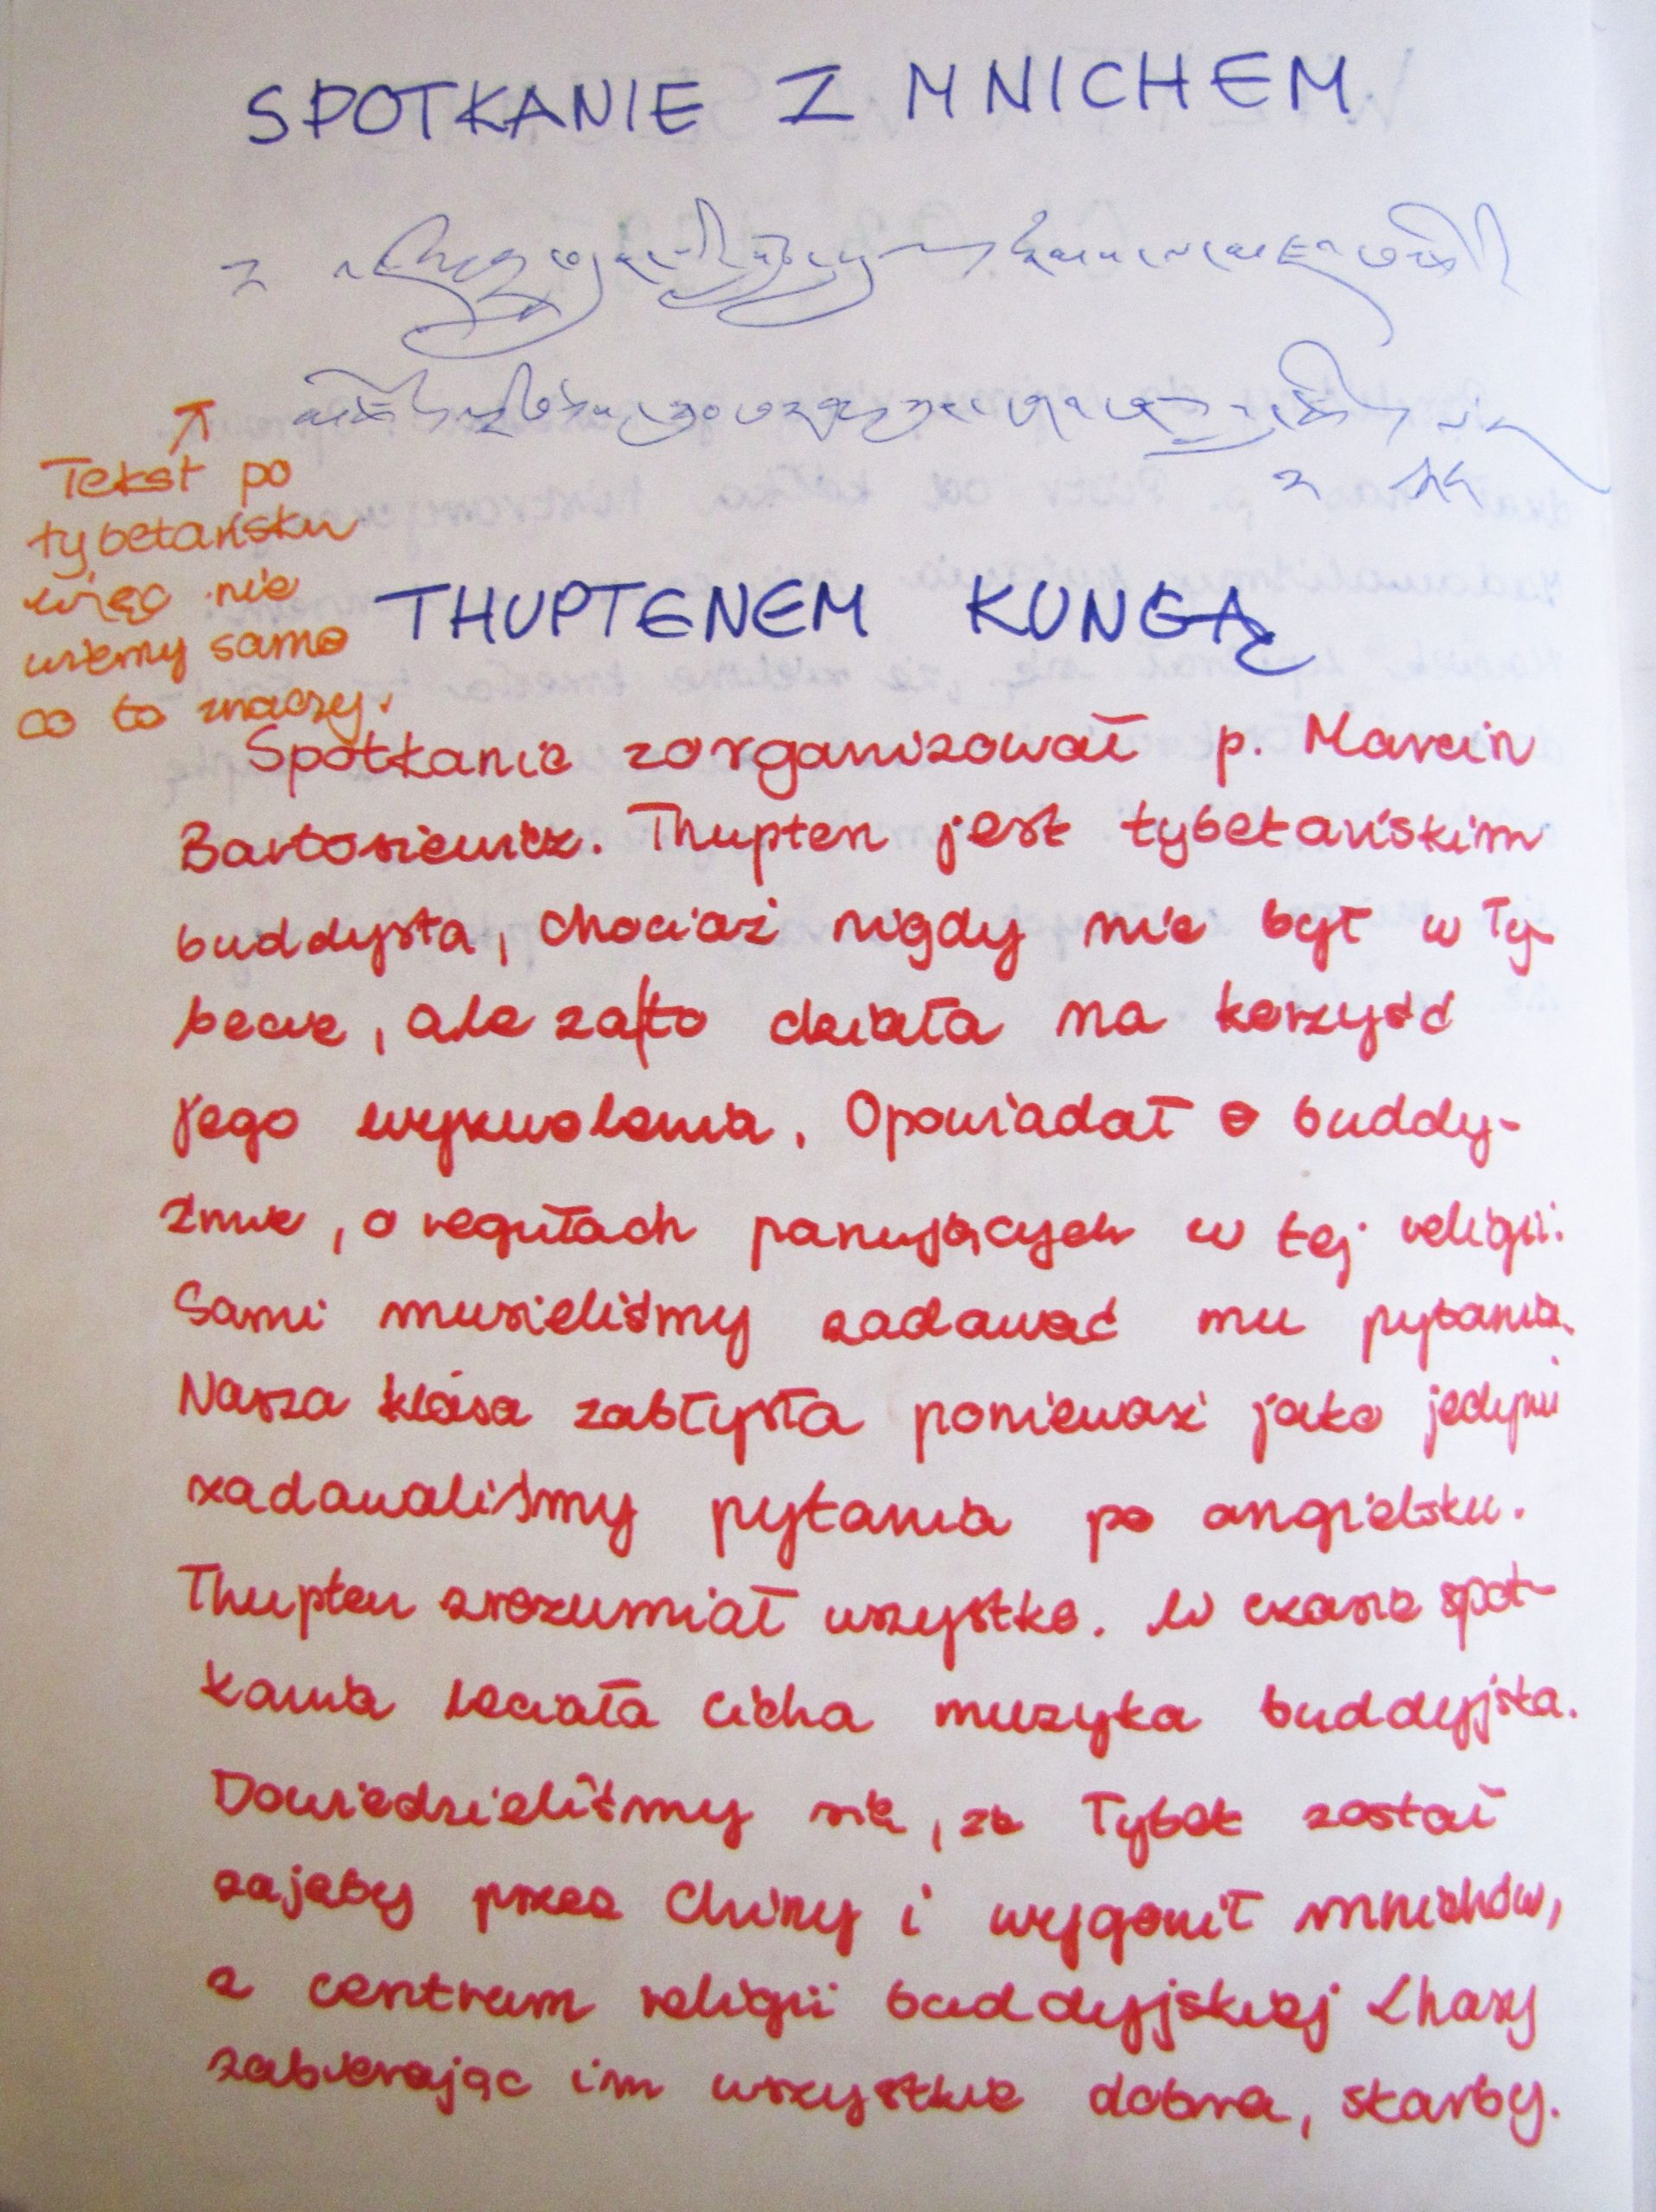 SPOTKANIE Z MNICHEM
Tekst po
tybetańsku
więc nie
wiemy samo
co to znaczy.
THUPTENEM KUNGĄ
Spotkanie zorganizował p. Marcin
Bartosiewicz. Thupten jest tybetańskim
buddystą, chociaż nigdy nie był w Ty-
becie, ale za|to działa na korzyść
jego wyzwolenia. Opowiadał o buddy-
źmie, o regułach panujących w tej religii.
Sami musieliśmy zadawać mu pytania.
Nasza klasa zabłysła ponieważ jako jedyni
zadawaliśmy pytania po angielsku.
Thupten zrozumiał wszystko. W czasie spot-
kania leciała cicha muzyka buddyjska.
Dowiedzieliśmy się, że Tybet został
zajęty przez Chiny i wygonił mnichów,
z centrum religii buddyjskiej Lhasy
zabierając im wszystkie dobra, skarby.